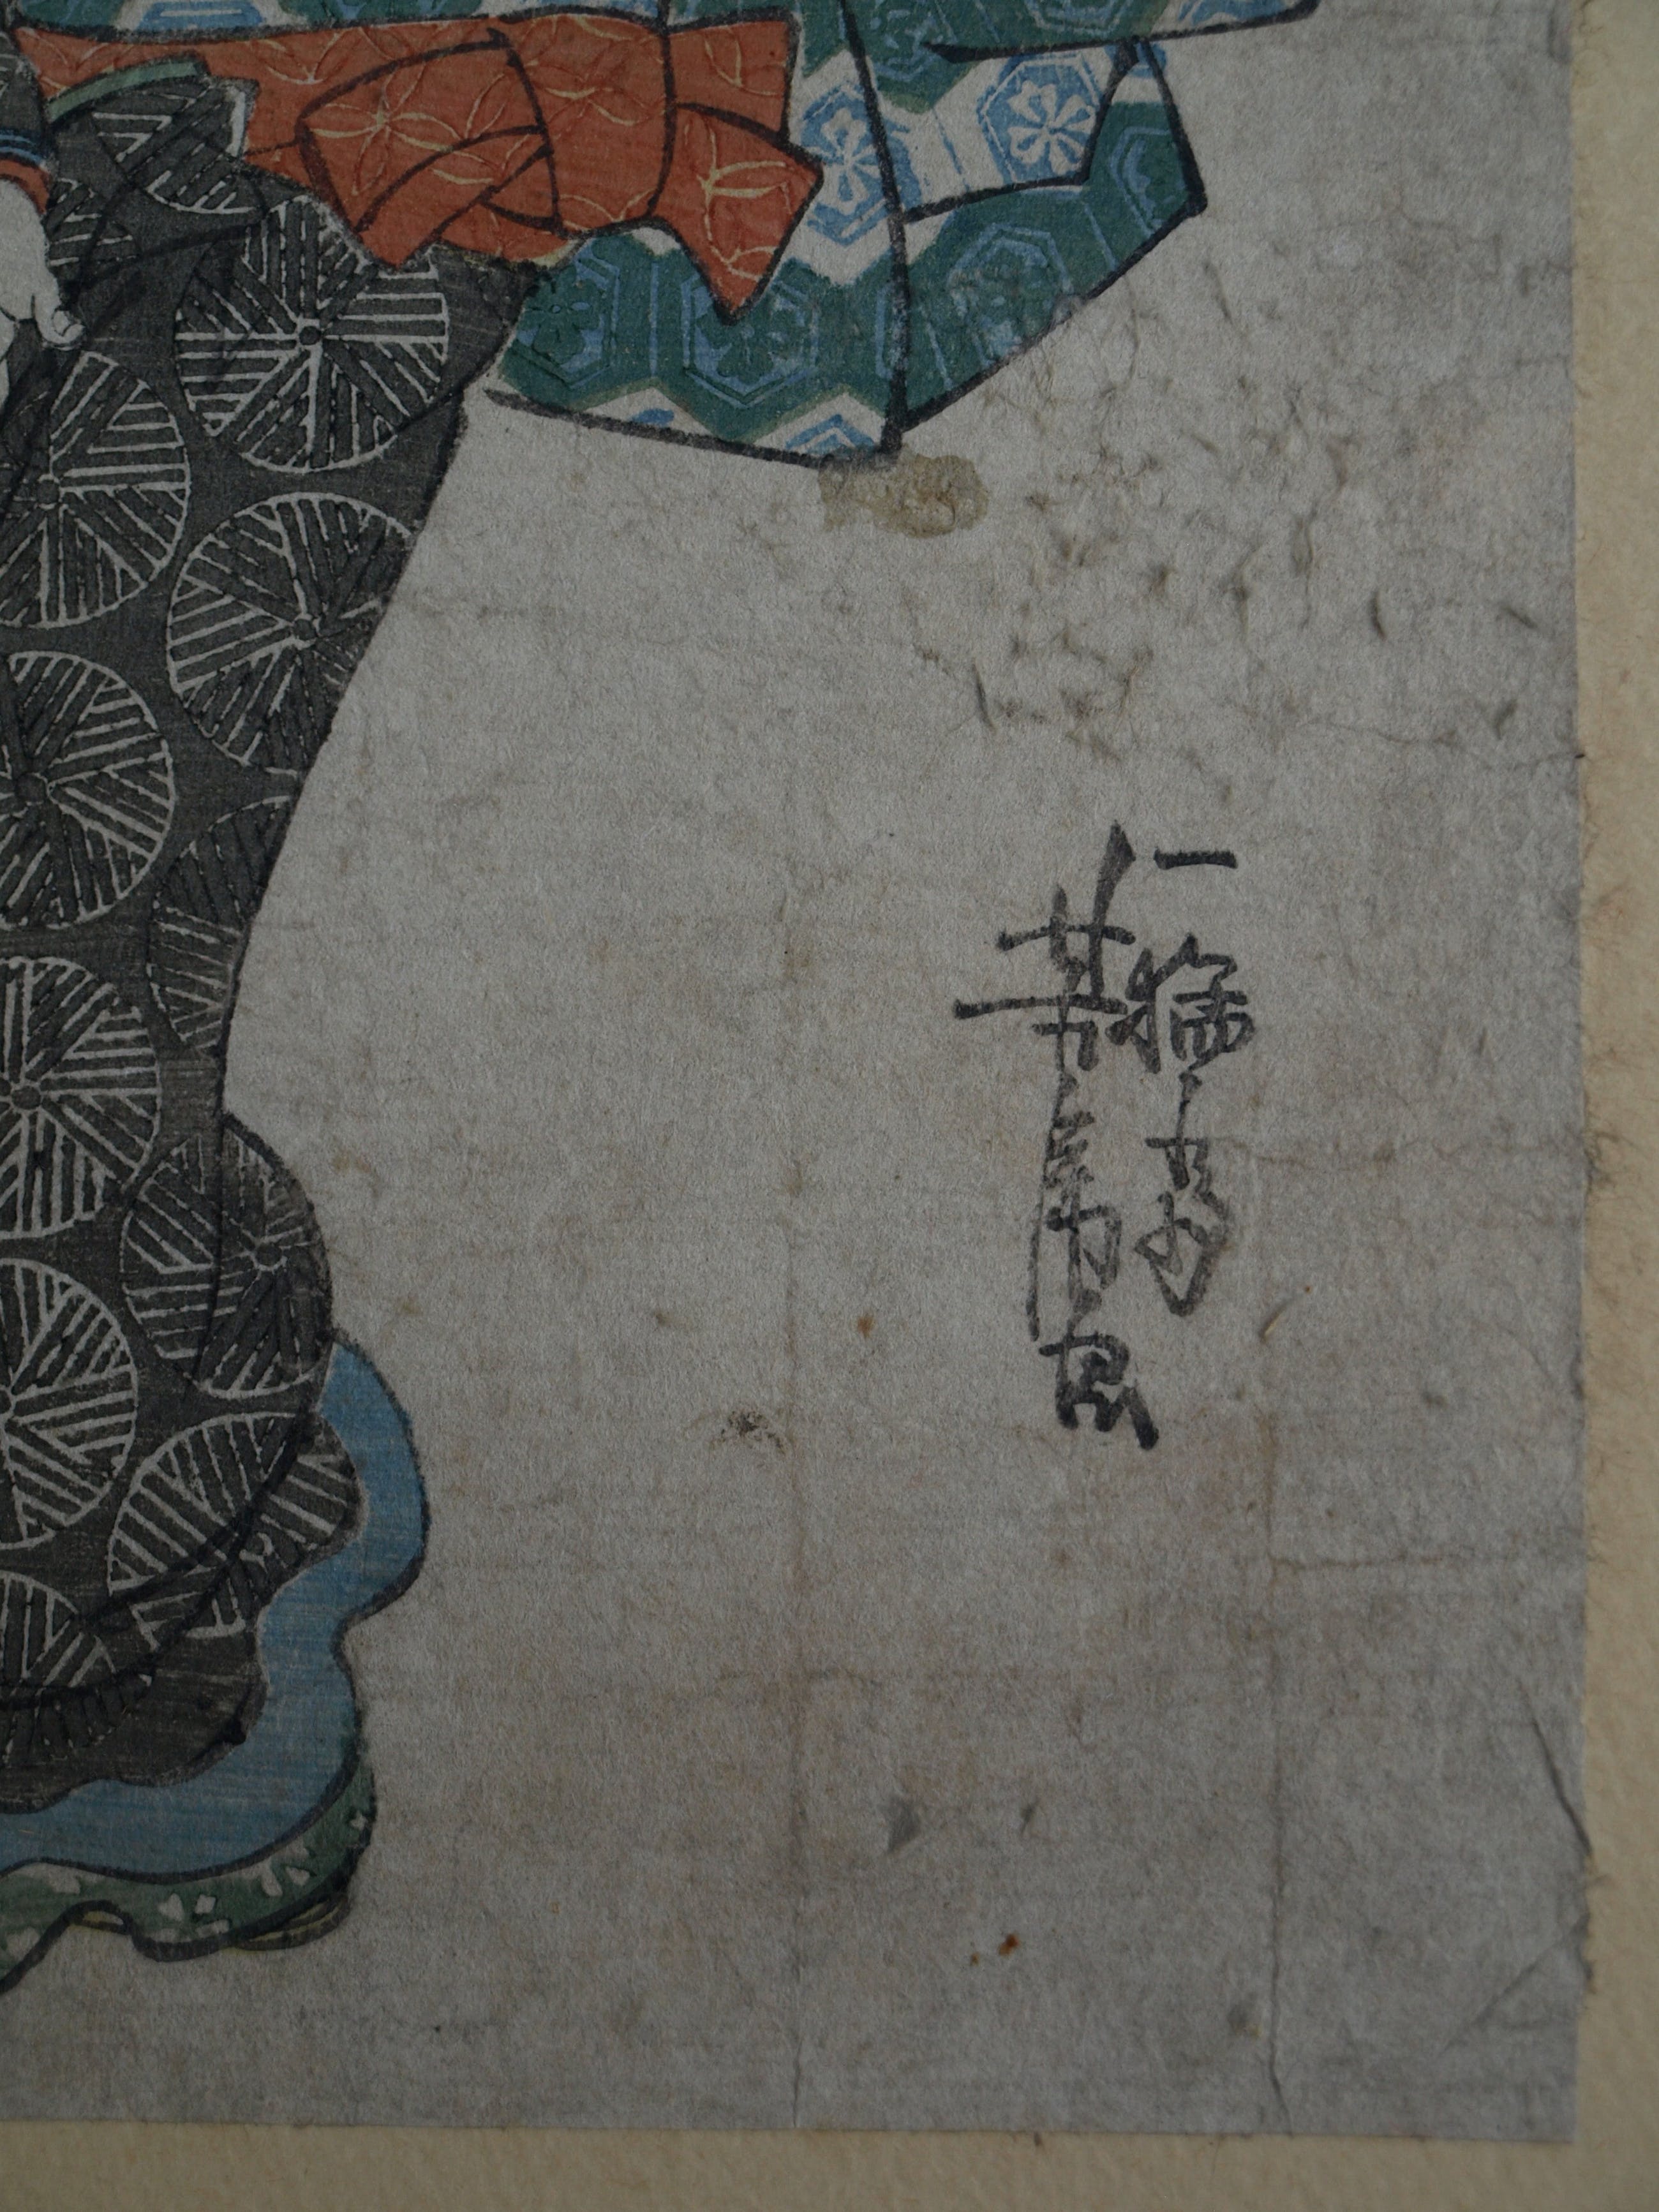 一猛齋
芳虎画